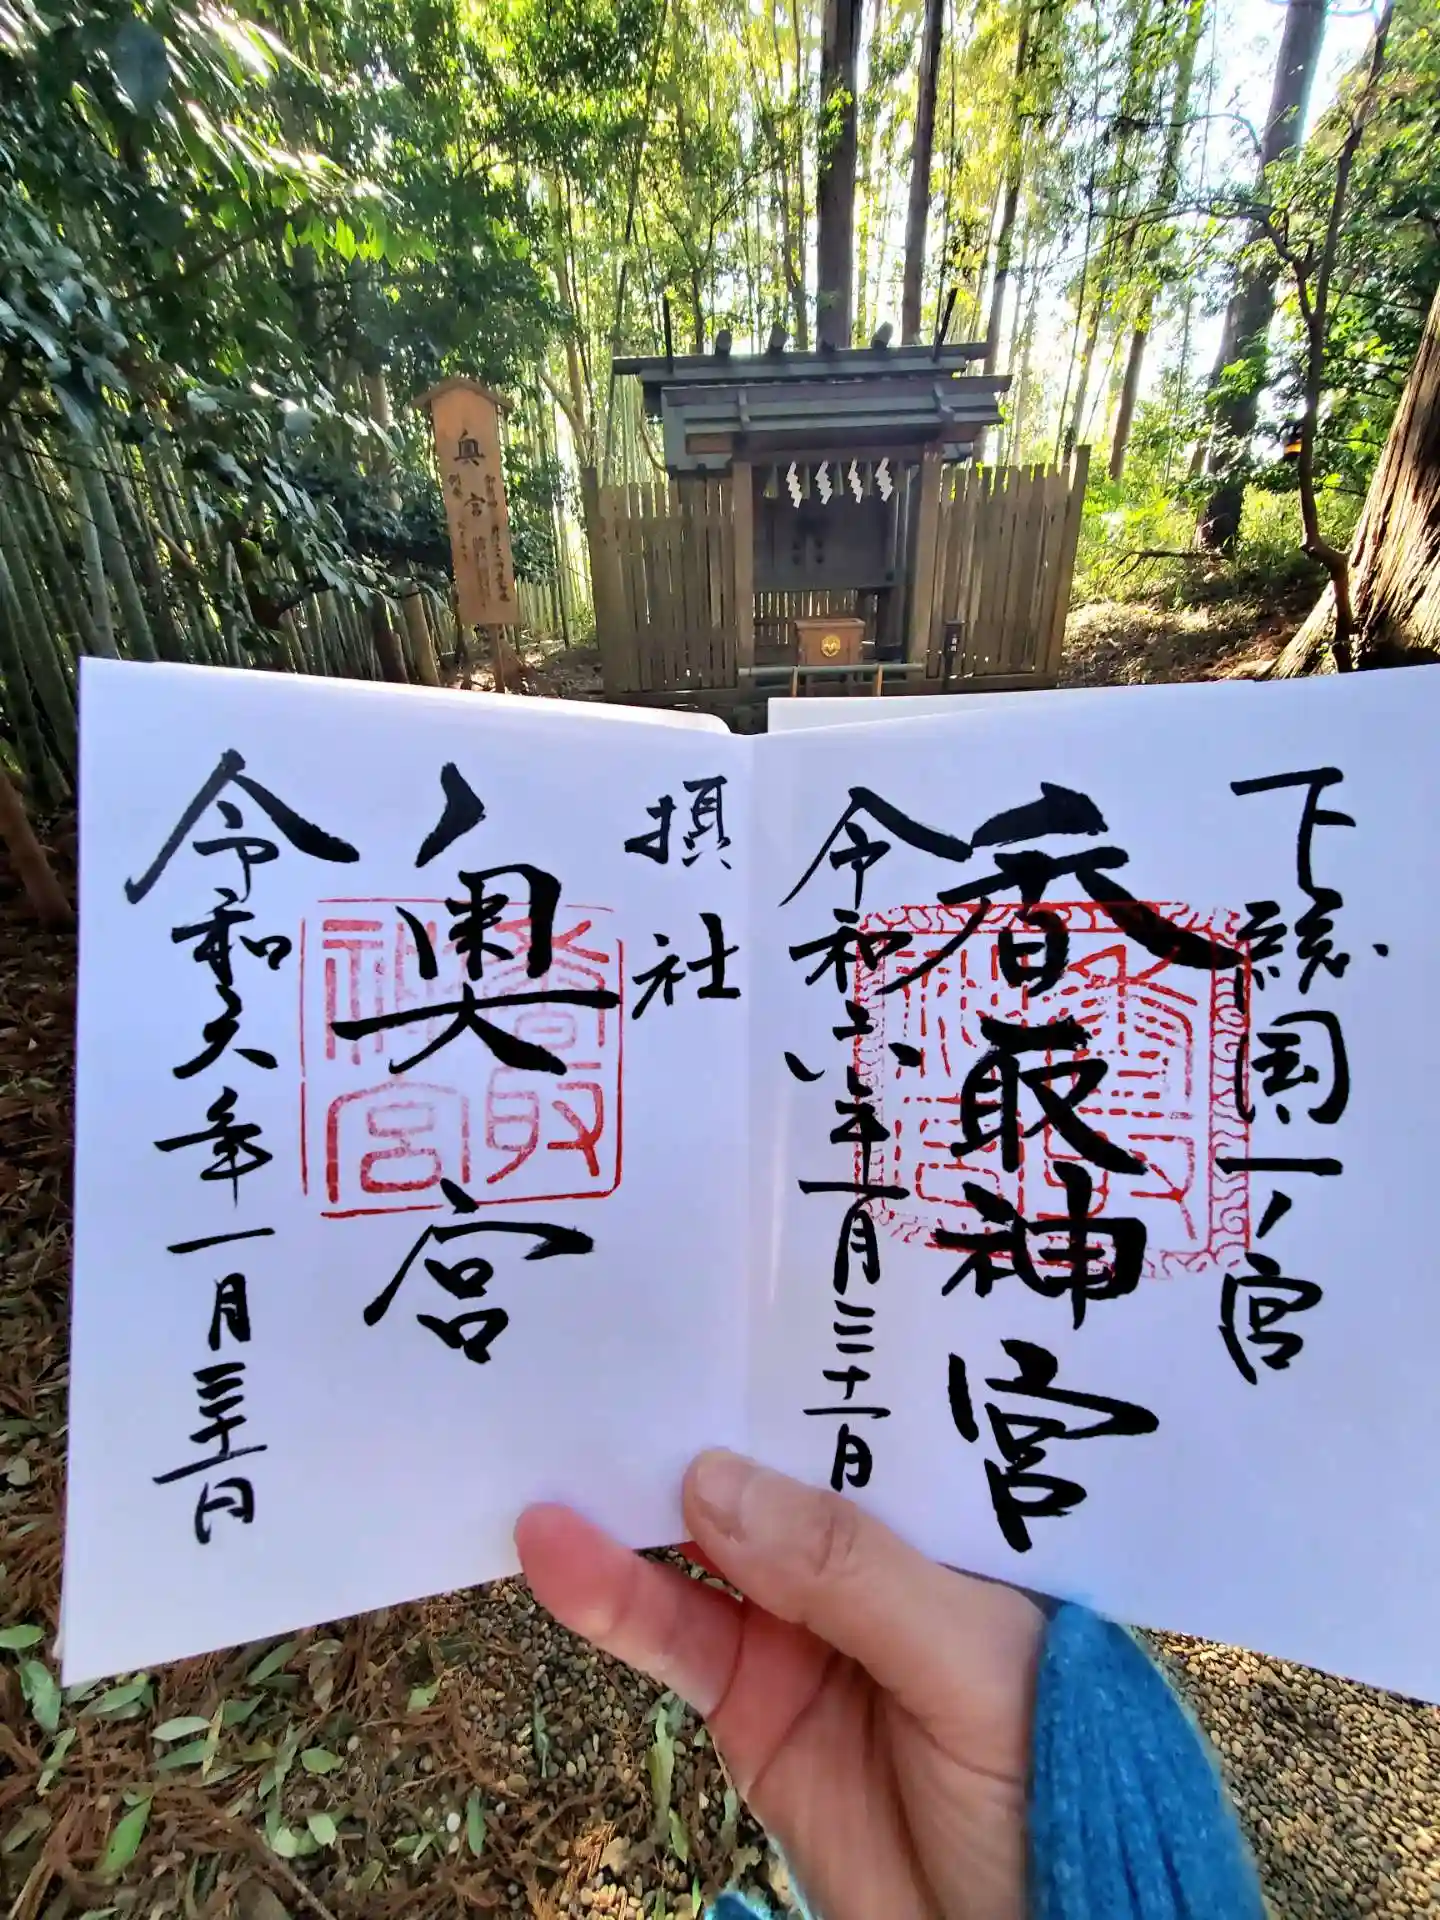 奥宮
下総国一ノ宮
香取神宮
令和六年一月三十一日
摂社
奥宮
令和六年一月三十一日
香取
神宮